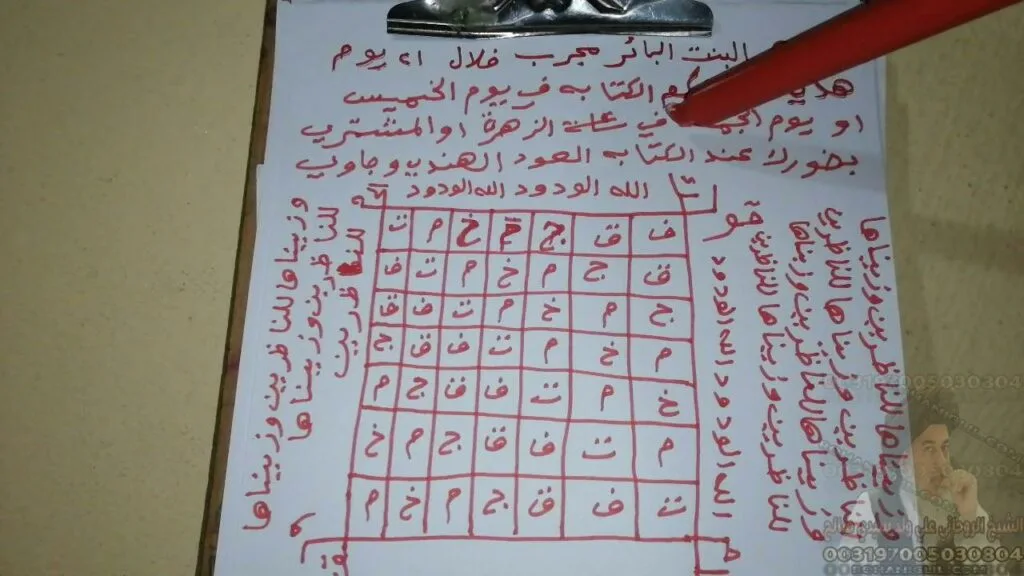 البنت البائر مجرب خلال ٢١ يوم
الكتابه في يوم الخميس
او يوم في ساعة الزهرة او المشتري
بخورك عند الكتابه العود الهندي وجاوي
الله الودود الله الودود
ف ق ج م خ م ت
ق ج م خ م ت ف
ج م خ م ت ف ق
م خ م ت ف ق ج
خ م ت ف ق ج م
م ت ف ق ج م خ
ت ف ق ج م خ م
الله الودود الله الودود
وزيناها للناظرين وزيناها
للناظرين وزيناها للناظرين
وزيناها للناظرين وزيناها
للناظرين وزيناها للناظرين
للناظرين وزيناها
للناظرين
وزيناها للناظرين وزيناها
الشيخ الروحاني علي ولد سيدي صالح
003197005030804